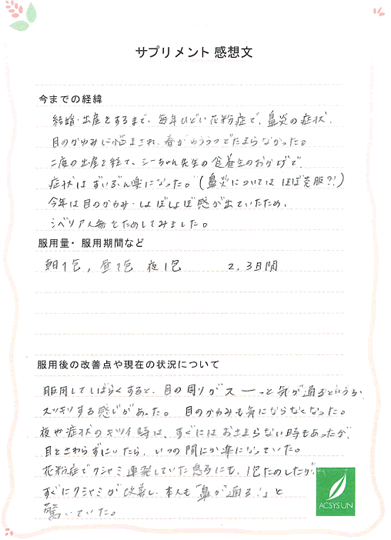 サプリメント 感想文
今までの経緯
結婚・出産をするまで、毎年ひどい花粉症で、鼻炎の症状、
目のかゆみに悩まされ、春がゆううつでたまらなかった。
二度の出産を経て、シーちゃん先生の食養生のおかげで、
症状はずいぶん楽になった。(鼻炎については ほぼ克服?!)
今年は目のかゆみ・しょぼしょぼ感が出ていたため、
シベリア人参をためしてみました。
服用量・服用期間など
朝1包, 昼1包 夜1包 2、3日間
服用後の改善点や現在の状況について
服用してしばらくすると、目の周りがスーーっと気が通るというか
スッキリする感じがあった。 目のかゆみも気にならなくなった。
夜や症状のキツイ時は、すぐにはおさまらない時もあったが、
目をさわらずにいたら、いつの間にか楽になっていた。
花粉症でクシャミ連発していた息子にも、1包ためしたが、
すぐにクシャミが改善し、本人も「鼻が通る!」と
驚いていた。
ACSYSUN